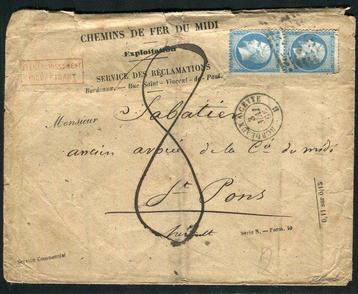 CHEMINS DE FER DU MIDI
Exploitation
SERVICE DES RÉCLAMATIONS
Bordeaux. — Rue Saint-Vincent-de-Paul.
Monsieur Sabatier
ancien avoué de la Cie du midi
St Pons
Hérault
8
BORDEAUX A CETTE
Série N. — Form. 10
Service Commercial